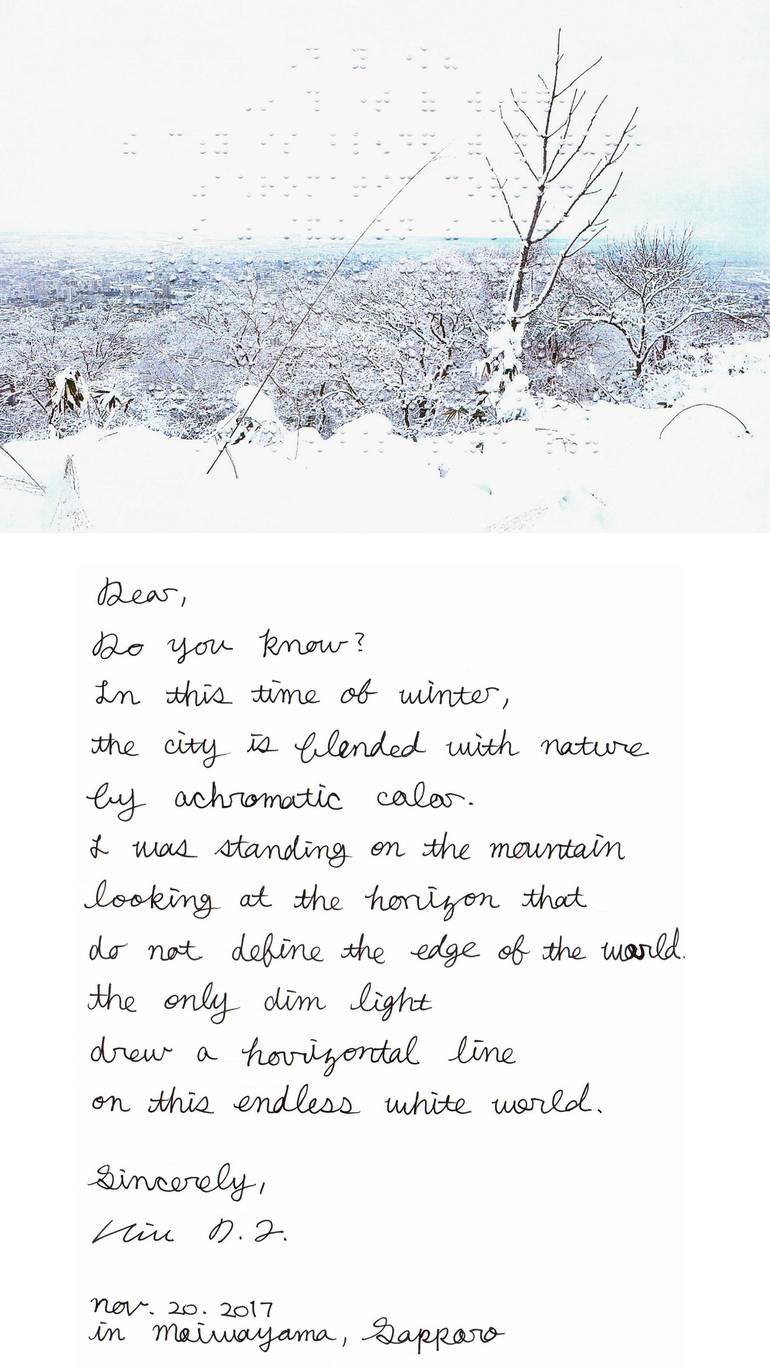 Dear,
Do you know?
In this time of winter,
the city is blended with nature
by achromatic color.
I was standing on the mountain
looking at the horizon that
do not define the edge of the world.
the only dim light
drew a horizontal line
on this endless white world.
Sincerely,
D. J.
nov. 20. 2017
in moiwayama, Sapporo